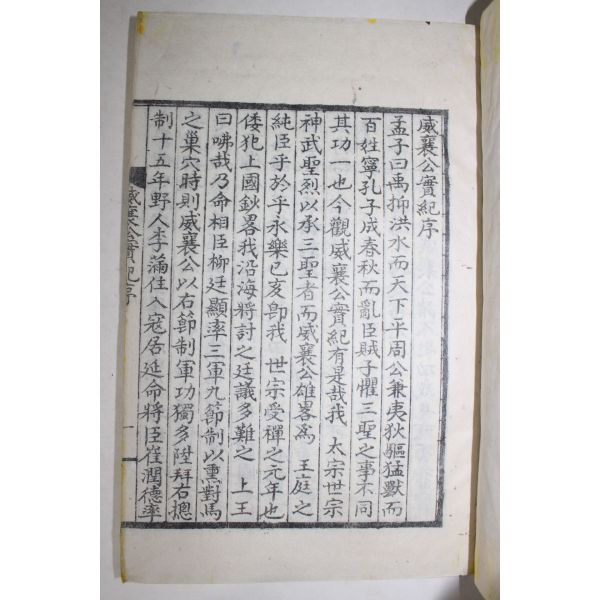 威襄公實紀序
孟子曰禹抑洪水而天下平周公兼夷狄驅猛獸而
百姓寧孔子成春秋而亂臣賊子懼三聖之事不同
其功一也今觀威襄公實紀有是哉我 太宗世宗
神武聖烈以承三聖者而威襄公雄畧為 王庭之
純臣乎於乎永樂己亥卽我 世宗受禪之元年也
倭犯上國鈔畧我沿海將討之廷議多難之 上王
曰咈哉乃命相臣柳廷顯率三軍九節制以熏對馬
之巢穴時則威襄公以右節制軍功獨多陞拜右摠
制十五年野人李滿住入寇居延命將臣崔潤德率
威襄公實紀序
一